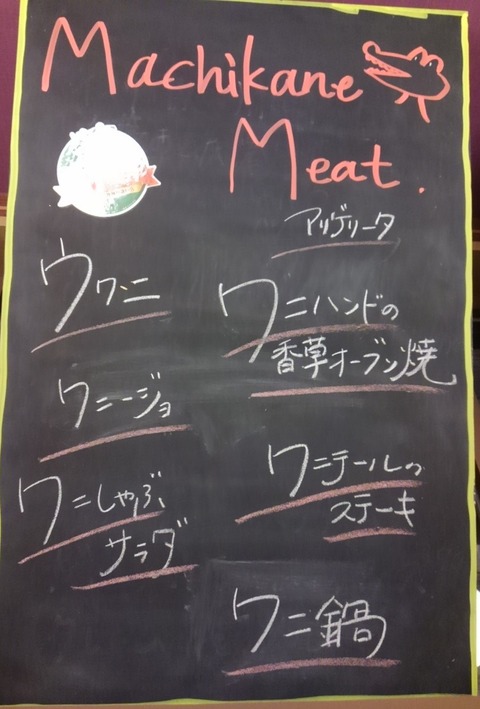 Machikane
Meat.
アリゲリータ
ウワニ
ワニハンドの
香草オーブン焼
ワニージョ
ワニテールの
ステーキ
ワニしゃぶ
サラダ
ワニ鍋